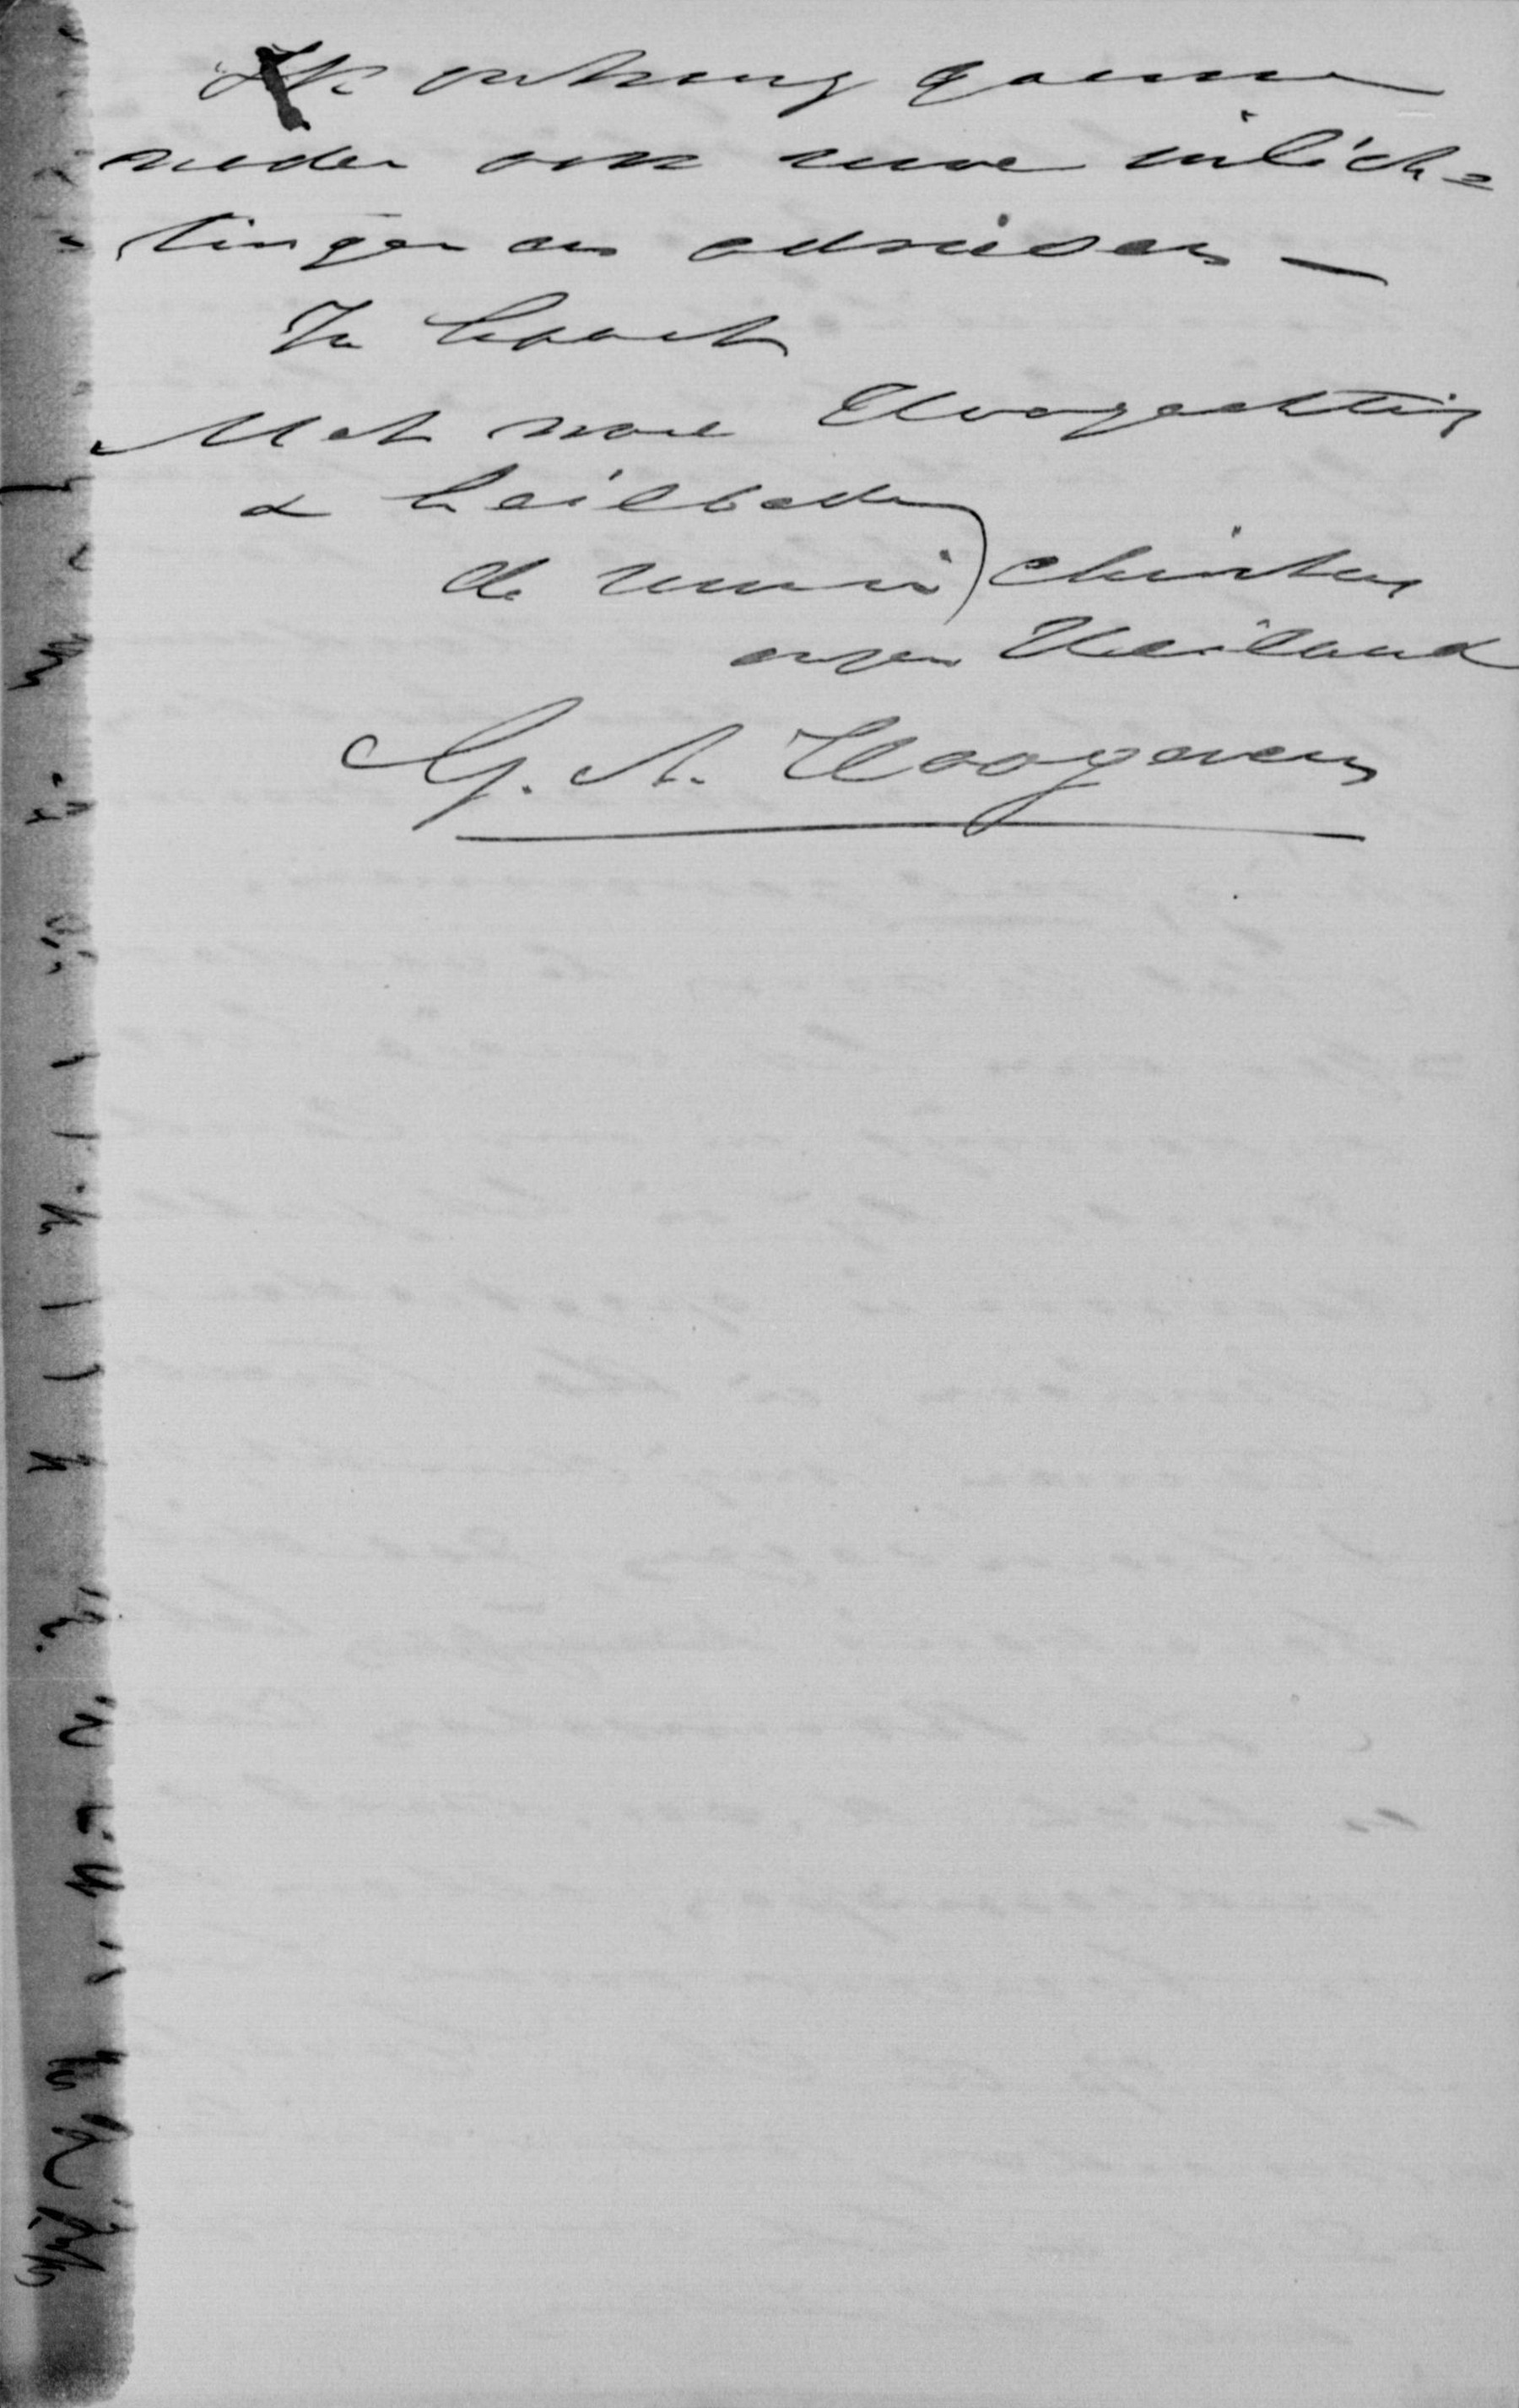 Ik ontvang gaarne
nader ook uwe inlich=
tingen en adviezen —
In haast
Met veel Hoogachting
& heilbede
de uwe in Christus
onzen Heiland
G. A. Hoogeveen